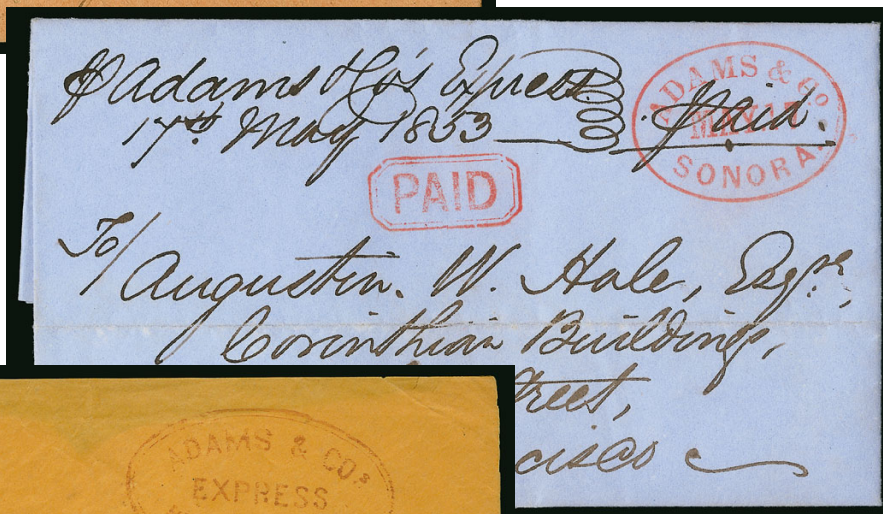 p Adams & Co's Express
17th May 1853 Paid.
ADAMS & Co.
MAY 17
SONORA.
PAID
To/ Augustin. W. Hale, Esqre,
Corinthian Buildings,
treet,
cisco
ADAMS & CO.S
EXPRESS